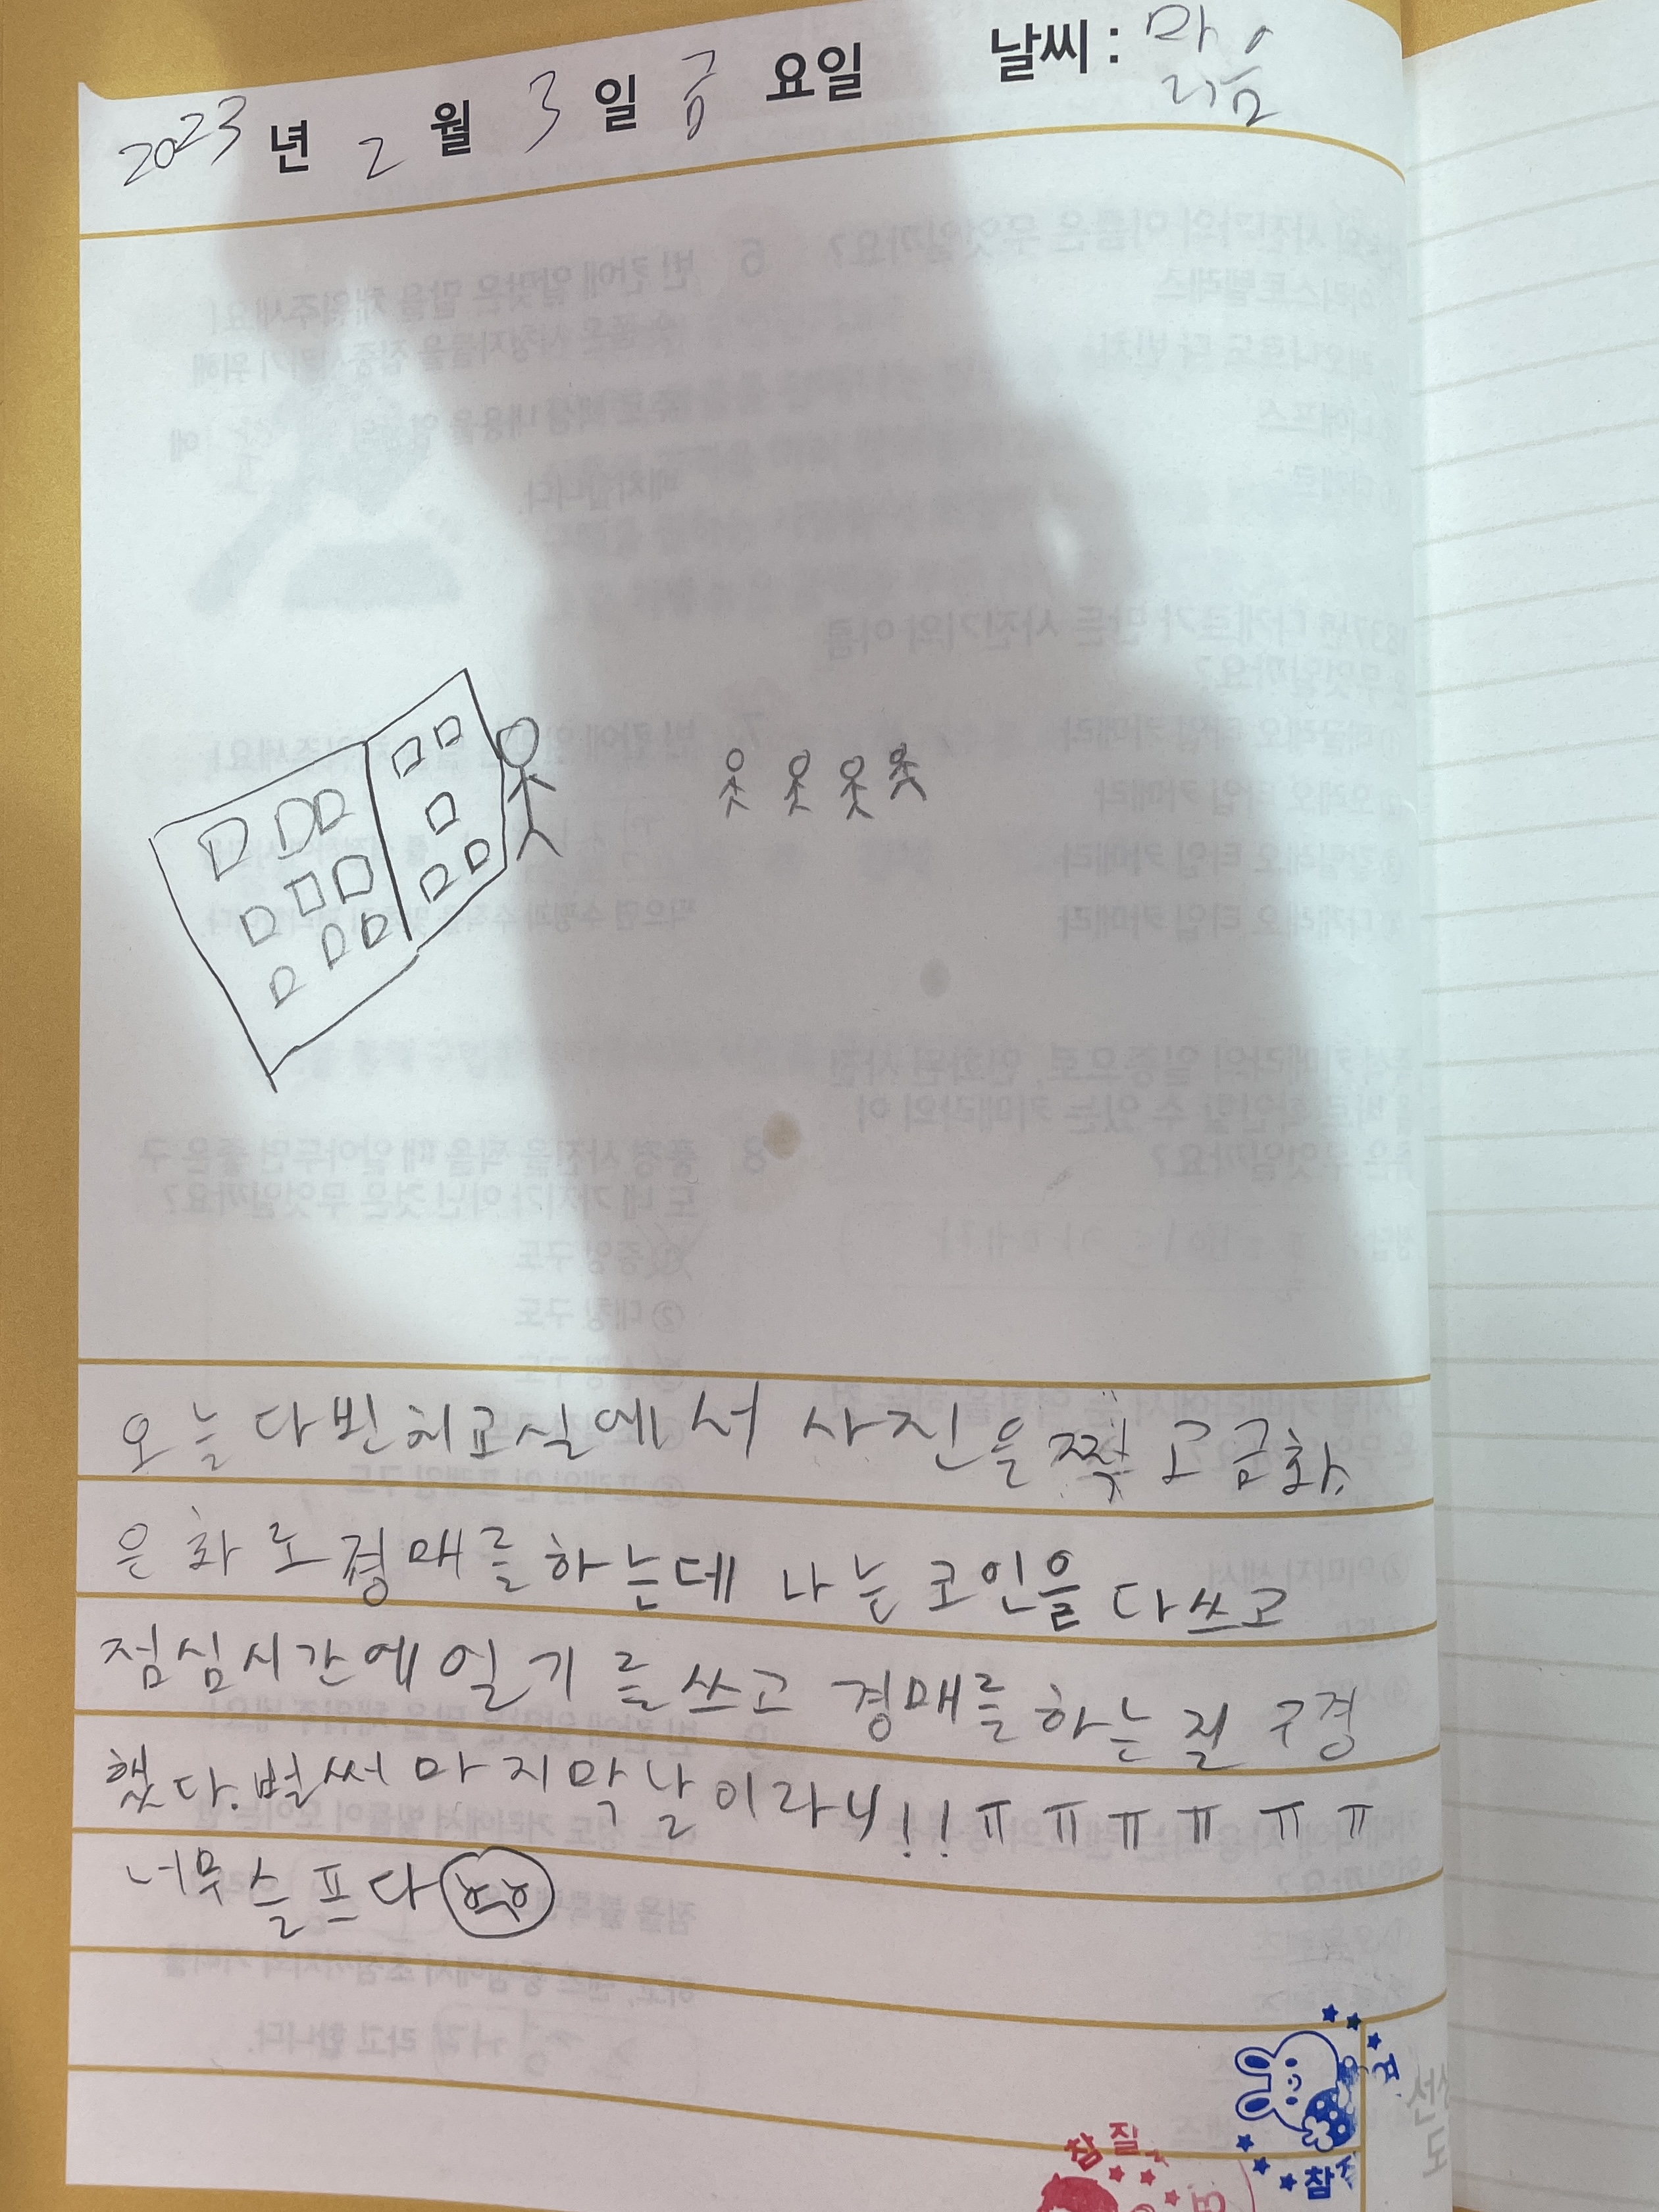 2023년 2월 3일 금요일 날씨: 맑음
오늘 다빈치교실에서 사진을 찍고 금화,
은화로 경매를 하는데 나는 코인을 다쓰고
점심시간에 일기를 쓰고 경매를하는걸 구경
했다. 벌써 마지막날이라니!! ㅠㅠㅠㅠㅠㅠ
너무슬프다
참잘
참